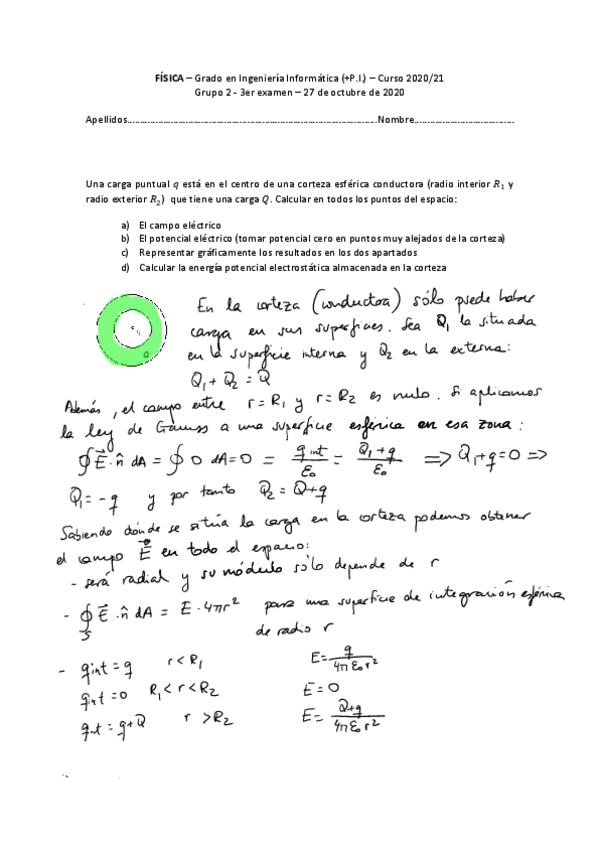 FÍSICA – Grado en Ingeniería Informática (+P.I.) – Curso 2020/21
Grupo 2 - 3er examen – 27 de octubre de 2020
Apellidos.....................................................................................Nombre...................................
Una carga puntual q está en el centro de una corteza esférica conductora (radio interior R₁ y
radio exterior R₂) que tiene una carga Q. Calcular en todos los puntos del espacio:
a) El campo eléctrico
b) El potencial eléctrico (tomar potencial cero en puntos muy alejados de la corteza)
c) Representar gráficamente los resultados en los dos apartados
d) Calcular la energía potencial electrostática almacenada en la corteza
En la corteza (conductora) sólo puede haber
carga en sus superficies. Sea Q₁ la situada
en la superficie interna y Q₂ en la externa:
Q₁ + Q₂ = Q
Q
Además, el campo entre r=R₁ y r=R₂ es nulo. Si aplicamos
la ley de Gauss a una superficie esférica en esa zona:
∮E⃗·n̂ dA = ∮ 0 dA = 0 = q int/ε₀ = Q₁+q/ε₀ ⟹ Q₁+q=0 ⟹
Q₁ = -q y por tanto Q₂ = Q+q
Sabiendo dónde se sitúa la carga en la corteza podemos obtener
el campo E⃗ en todo el espacio:
- será radial y su módulo sólo depende de r
- ∮S E⃗·n̂ dA = E·4πr² para una superficie de integración esférica
de radio r
- qint = q r < R₁ E = q/4πε₀r²
qint = 0 R₁ < r < R₂ E = 0
qint = q+Q r > R₂ E = Q+q/4πε₀r²